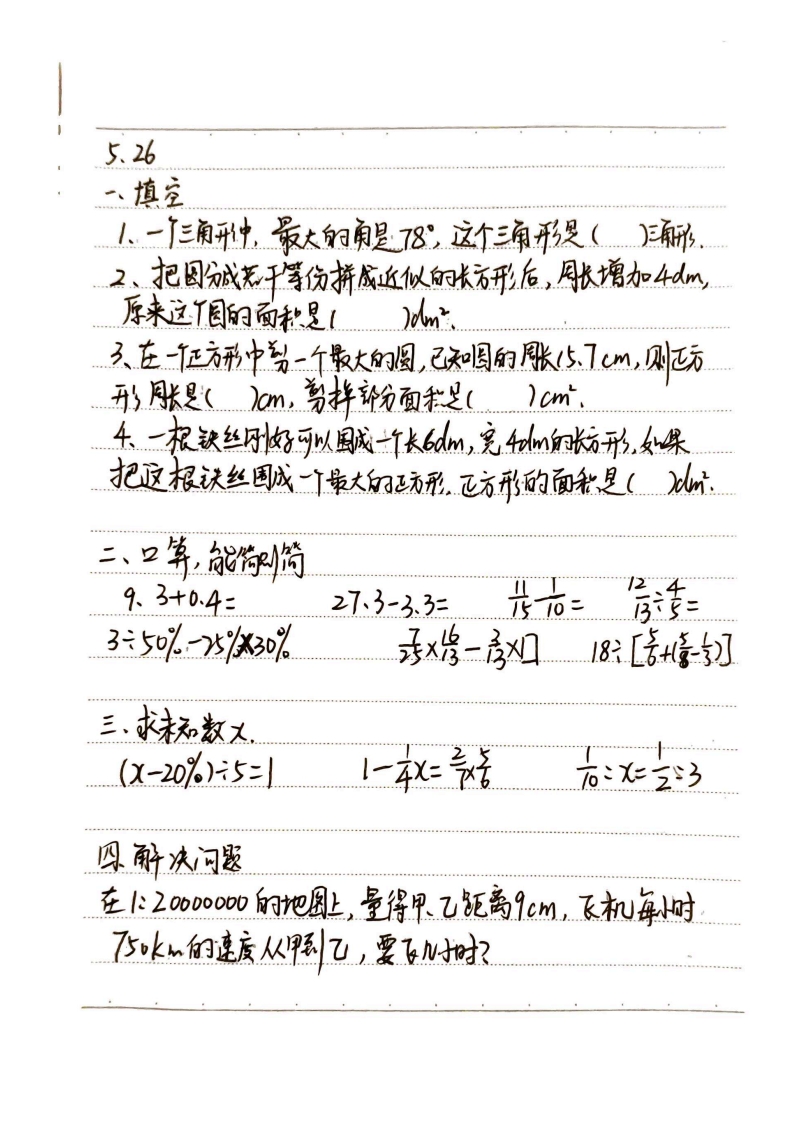 5.26
一、填空
1、一个三角形中,最大的角是78°,这个三角形是( )三角形.
2、把圆分成若干等份拼成近似的长方形后,周长增加4dm,
原来这个圆的面积是( )dm².
3、在一个正方形中剪一个最大的圆,已知圆的周长15.7cm,则正方
形周长是( )cm,剪掉部分面积是( )cm².
4、一根铁丝刚好可以围成一个长6dm,宽4dm的长方形,如果
把这根铁丝围成一个最大的正方形.正方形的面积是( )dm².
二、口算,能简则简
9.3+0.4= 27.3-3.3= 11/15-1/10= 12/13÷4/5=
3÷50%-25%×30% 7/25×16/13-3/13×[] 18÷[5/6+(5/8-1/3)]
三、求未知数x.
(x-20%)÷5=1 1-1/4x=2/7×5/6 1/10:x=1/2:3
四.解决问题
在1:20000000的地图上,量得甲、乙距离9cm,飞机每小时
750km的速度从甲到乙,要飞几小时?